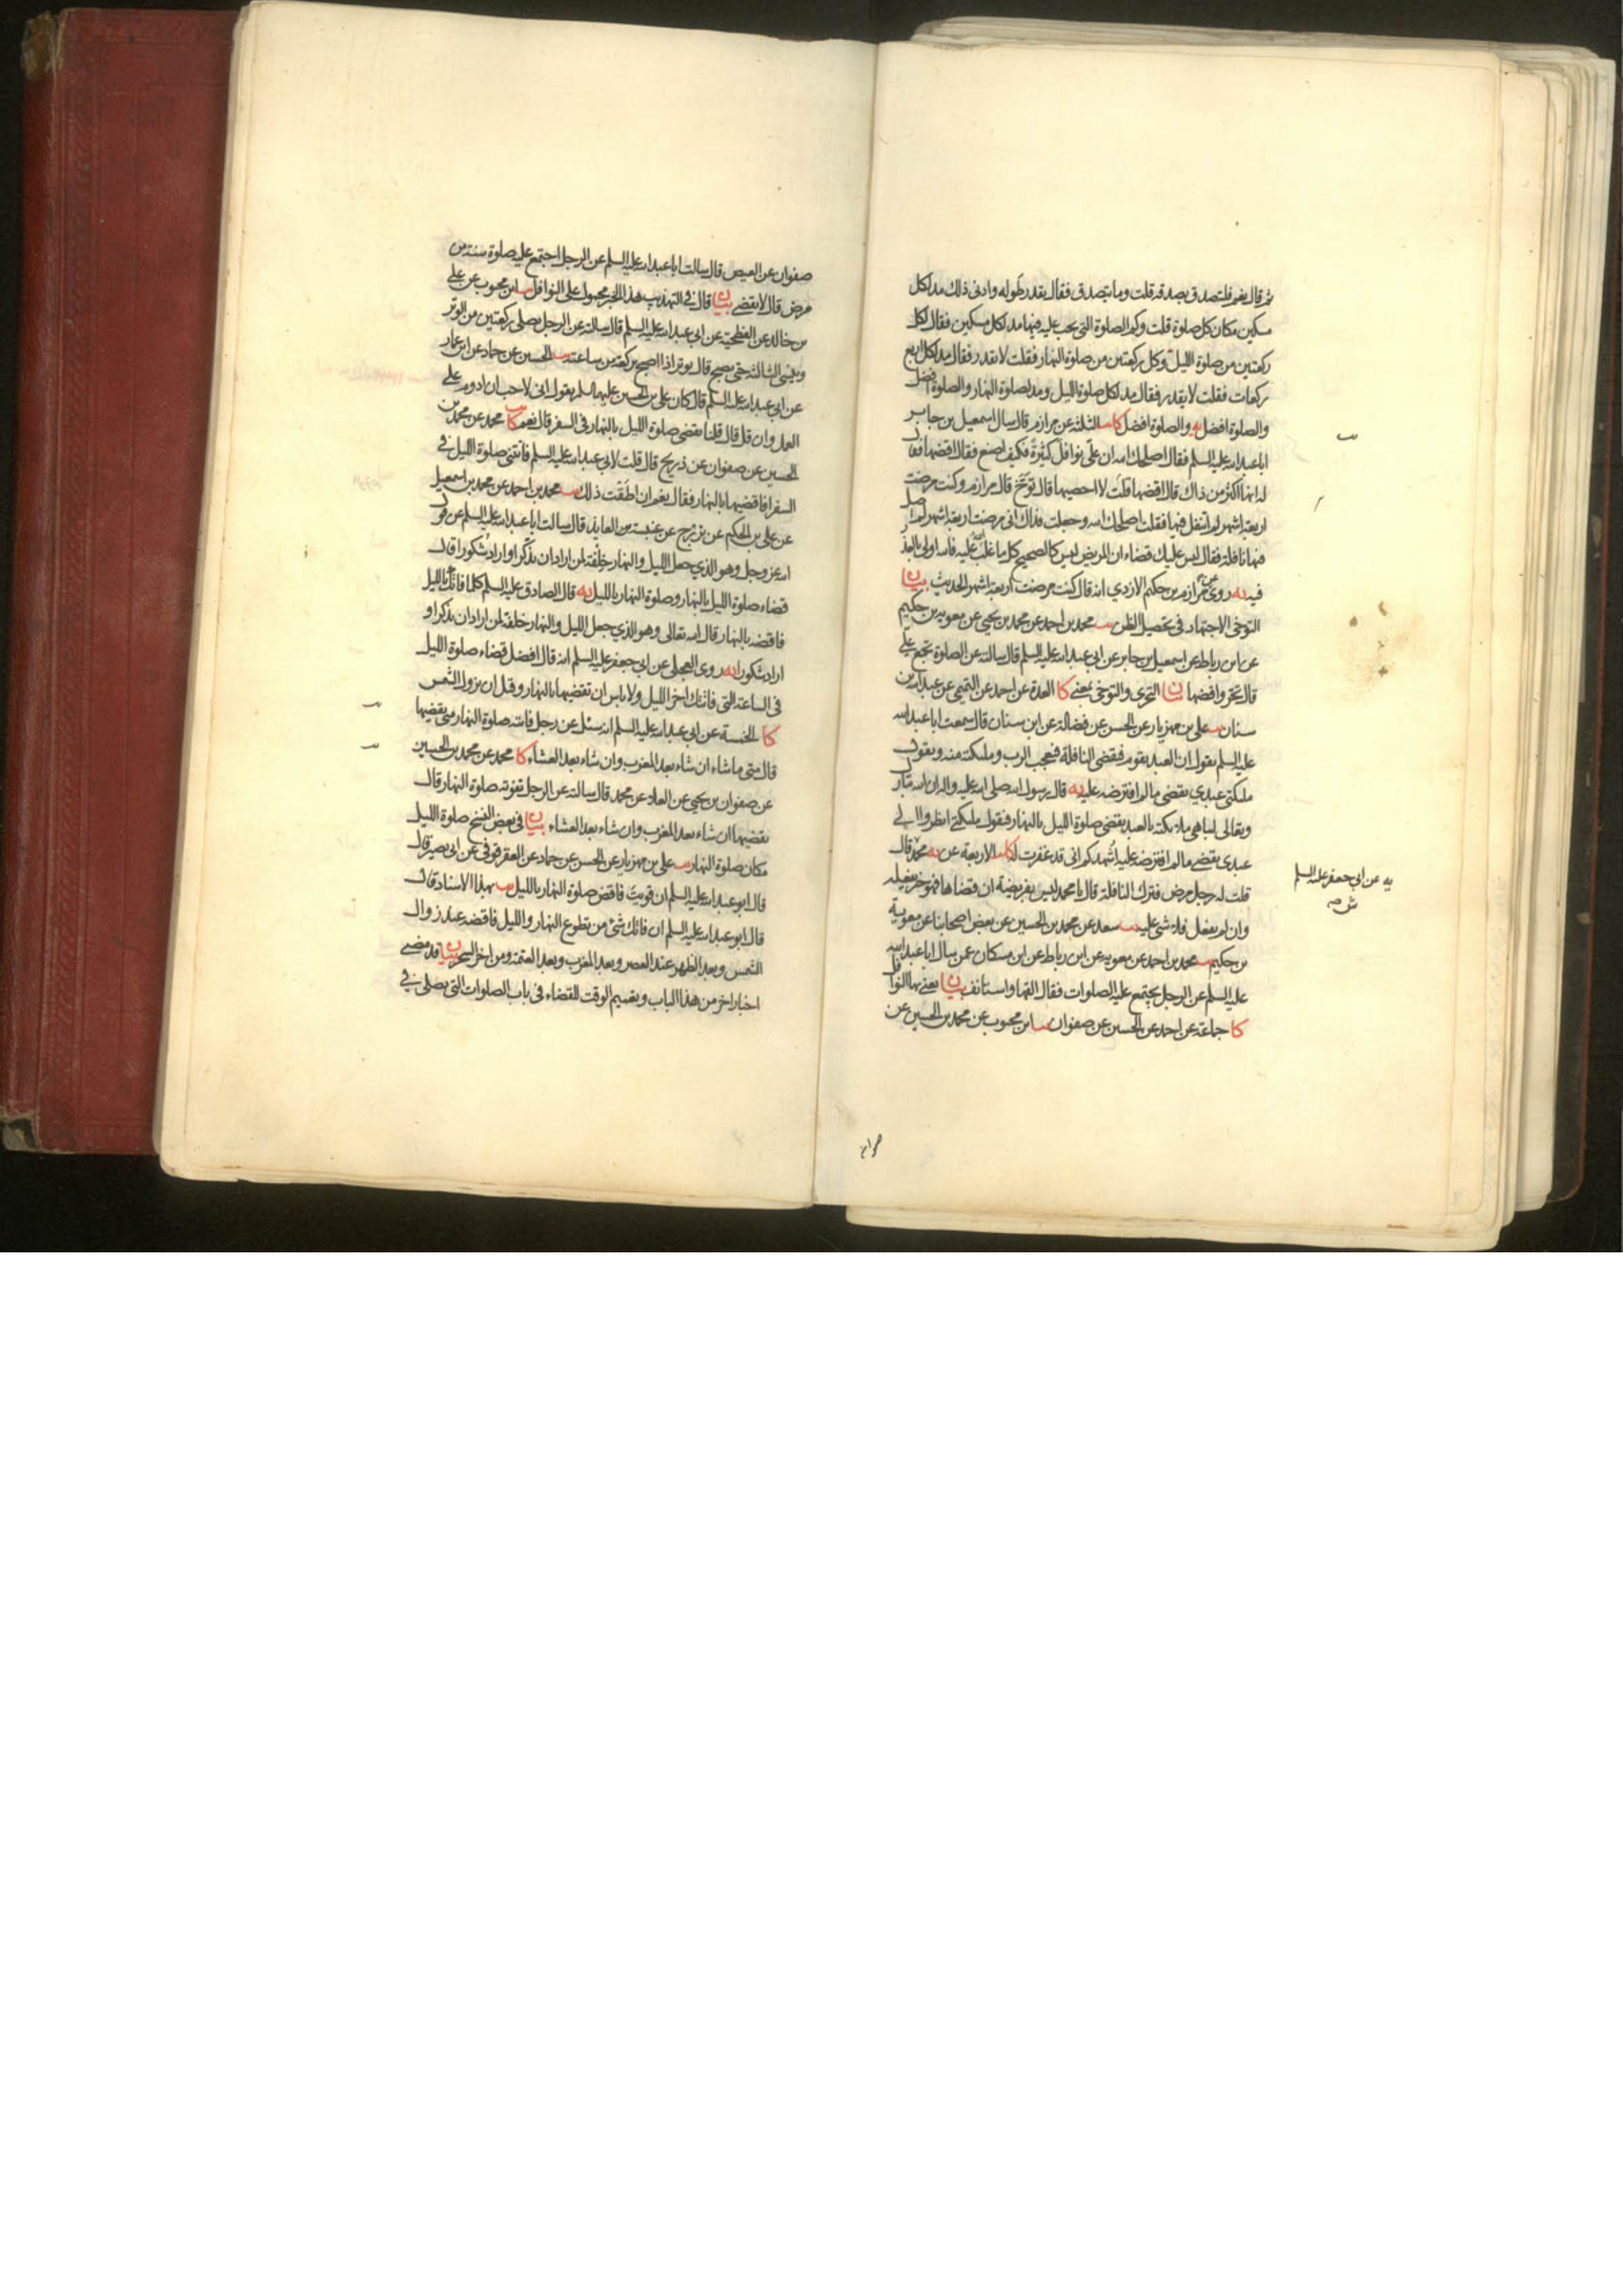 ثم قال نعم فليتصدق بصدقة قلت وما يتصدق فقال بقدر طوله وادنى ذلك مد لكل
مسكين مكان كل صلوة قلت وكم الصلوة التى يجب عليه فيها مد لكل مسكين فقال لكل
ركعتين من صلوة الليل وكل ركعتين من صلوة النهار فقلت لا يقدر فقال مد لكل اربع
ركعات فقلت لا يقدر فقال مد لكل صلوة الليل ومد لصلوة النهار والصلوة افضل
والصلوة افضل يه والصلوة افضل كا يب الثلثة عن مرازم قال سال اسمعيل بن جابر
اباعبدالله عليه السلم فقال اصلحك الله ان علىّ نوافل كثيرة فكيف اصنع فقال اقضها فقال
له انها اكثر من ذاك قال اقضها قلت لا احصيها قال توخ قال مرازم وكنت مرضت
اربعة اشهر لم اتنفل فيها فقلت اصلحك الله وجعلت فداك انى مرضت اربعة اشهر لم اصل
فيها نافلة فقال ليس عليك قضاء ان المريض ليس كالصحيح كل ما غلب الله عليه فالله اولى بالعذر
فيه يه روى عن مرازم بن حكيم الازدي انه قال كنت مرضت اربعة اشهر الحديث بيان
التوخى الاجتهاد فى تحصيل الظن يب محمد بن احمد عن محمد بن يحيى عن معوية بن حكيم
عن ابن رباط عن اسمعيل بن جابر عن ابى عبدالله عليه السلم قال سالته عن الصلوة تجتمع علىّ
قال تحر واقضها بيان التحرى والتوخى بمعنى كا العدة عن احمد عن التميمى عن عبدالله بن
سنان يب على بن مهزيار عن الحسن عن فضالة عن ابن سنان قال سمعت اباعبدالله
عليه السلم يقول ان العبد يقوم فيقضى النافلة فيعجب الرب وملئكته منه ويقول
ملئكتى عبدي يقضى ما لم افترضه عليه يه قال رسول الله صلى الله عليه واله ان الله تبارك
وتعالى ليباهى ملائكته بالعبد يقضى صلوة الليل بالنهار فيقول ملئكتى انظروا الى
عبدى يقضى مالم افترضه عليه اشهدكم انى قد غفرت له كا يب الاربعة عن يه محمد قال
قلت له رجل مرض فترك النافلة قال يا محمد ليس بفريضة ان قضاها فهو خير يفعله
وان لم يفعل فلا شئ عليه يب سعد عن محمد بن الحسين عن بعض اصحابنا عن معوية
بن حكيم يب محمد بن احمد عن معوية عن ابن رباط عن ابن مسكان عمن سال اباعبدالله
عليه السلم عن الرجل يجتمع عليه الصلوات فقال القها واستانف بيان يعنى بها النوافل
كا جماعة عن احمد عن الحسين عن صفوان يب ابن محبوب عن محمد بن الحسين عن
يه عن ابى جعفر عليه السلم
ش صه
صفوان عن العيص قال سالت اباعبدالله عليه السلم عن الرجل اجتمع عليه صلوة سنة من
مرض قال لا يقضى بيان قال فى التهذيب هذا الخبر محمول على النوافل يب ابن محبوب عن على
بن خالد عن الفطحية عن ابى عبدالله عليه السلم قال سالته عن الرجل يصلى ركعتين من الوتر
وينسى الثالثة حتى يصبح قال يوتر اذا اصبح بركعة من ساعته يب الحسين عن حماد عن ابن عمار
عن ابى عبدالله عليه السلم قال كان على بن الحسين عليهما السلم يقول انى لاحب ان ادوم على
العمل وان قل قال قلنا نقضى صلوة الليل بالنهار فى السفر قال نعم كا يب محمد عن محمد بن
الحسين عن صفوان عن ذريح قال قلت لابى عبدالله عليه السلم فاتتنى صلوة الليل فى
السفر افاقضيها بالنهار فقال نعم ان اطقت ذلك يب محمد بن احمد عن محمد بن اسمعيل
عن على بن الحكم عن بزرج عن عنبسة بن العابد قال سالت اباعبدالله عليه السلم عن قول
الله عز وجل وهو الذي جعل الليل والنهار خلفة لمن اراد ان يذكر او اراد شكورا قال
قضاء صلوة الليل بالنهار وصلوة النهار بالليل يه قال الصادق عليه السلم كلما فاتك بالليل
فاقضه بالنهار قال الله تعالى وهو الذي جعل الليل والنهار خلفة لمن اراد ان يذكر او
اراد شكورا يه روى العجلى عن ابى جعفر عليه السلم انه قال افضل قضاء صلوة الليل
فى الساعة التى فاتتك اخر الليل ولا باس ان تقضيها بالنهار وقبل ان تزول الشمس
كا الخمسة عن ابى عبدالله عليه السلم انه سئل عن رجل فاتته صلوة النهار متى يقضيها
قال متى ما شاء ان شاء بعد المغرب وان شاء بعد العشاء كا محمد عن محمد بن الحسين
عن صفوان بن يحيى عن العلا عن محمد قال سالته عن الرجل تفوته صلوة النهار قال
يقضيها ان شاء بعد المغرب وان شاء بعد العشاء بيان فى بعض النسخ صلوة الليل
مكان صلوة النهار يب على بن مهزيار عن الحسن عن حماد عن العقرقوفى عن ابى بصير قال
قال ابو عبدالله عليه السلم ان قويت فاقض صلوة النهار بالليل يب بهذا الاسناد قال
قال ابو عبدالله عليه السلم ان فاتك شئ من تطوع النهار والليل فاقضه عند زوال
الشمس وبعد الظهر عند العصر وبعد المغرب وبعد العتمة ومن اخر السحر بيان قد مضى
اخبار اخر من هذا الباب وتقسيم الوقت للقضاء فى باب الصلوات التى يصلى فى